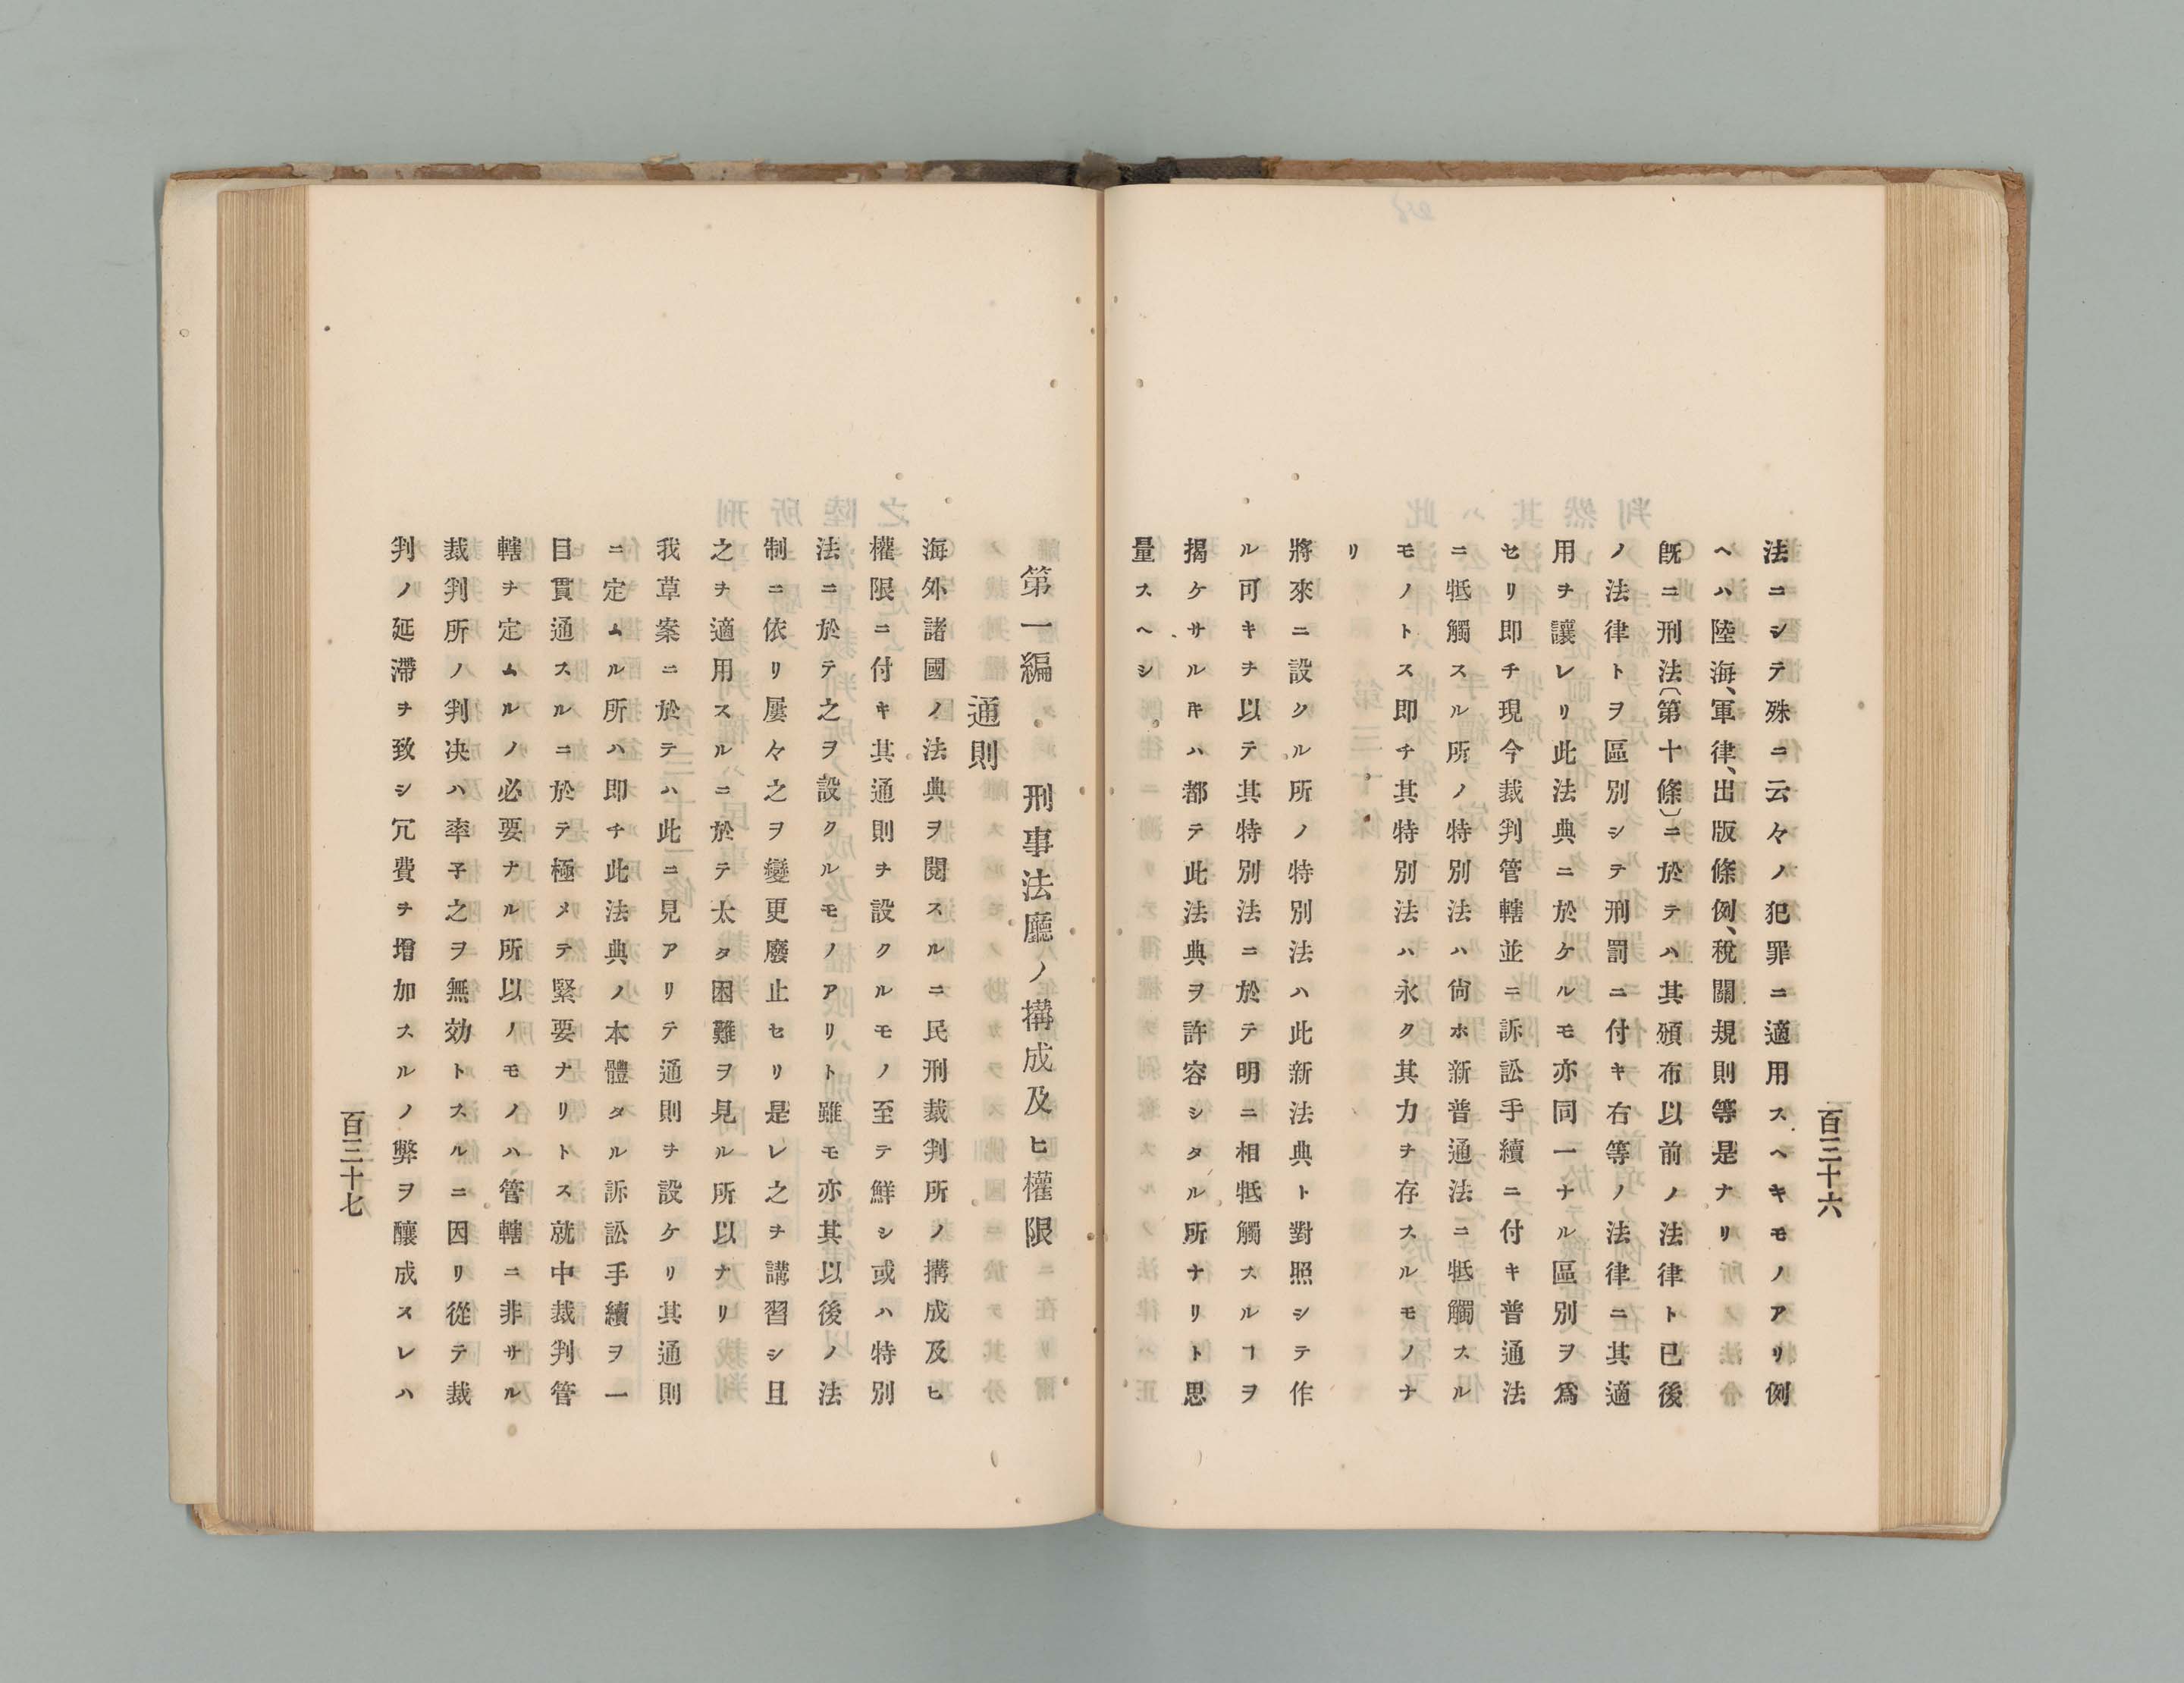 百三十六
法ニシテ殊ニ云々ノ犯罪ニ適用スヘキモノアリ例
ヘハ陸海、軍律、出版條例、稅關規則等是ナリ
旣ニ刑法(第十條)ニ於テハ其頒布以前ノ法律ト已後
ノ法律トヲ區別シテ刑罰ニ付キ右等ノ法律ニ其適
用ヲ讓レリ此法典ニ於ケルモ亦同一ナル區別ヲ爲
セリ即チ現今裁判管轄並ニ訴訟手續ニ付キ普通法
ニ牴觸スル所ノ特別法ハ尙ホ新普通法ニ牴觸スル
モノトス即チ其特別法ハ永ク其力ヲ存スルモノナ
リ
將來ニ設クル所ノ特別法ハ此新法典ト對照シテ作
ル可キヲ以テ其特別法ニ於テ明ニ相牴觸スルヿヲ
揭ケサルキハ都テ此法典ヲ許容シタル所ナリト思
量スヘシ
第一編 刑事法廳ノ搆成及ヒ權限
通則
海外諸國ノ法典ヲ閱スルニ民刑裁判所ノ搆成及ヒ
權限ニ付キ其通則ヲ設クルモノ至テ鮮シ或ハ特別
法ニ於テ之ヲ設クルモノアリト雖モ亦其以後ノ法
制ニ依リ屢々之ヲ變更廢止セリ是レ之ヲ講習シ且
之ヲ適用スルニ於テ太タ困難ヲ見ル所以ナリ
我草案ニ於テハ此ニ見アリテ通則ヲ設ケリ其通則
ニ定ムル所ハ即チ此法典ノ本體タル訴訟手續ヲ一
目貫通スルニ於テ極メテ緊要ナリトス就中裁判管
轄ヲ定ムルノ必要ナル所以ノモノハ管轄ニ非サル
裁判所ノ判决ハ率子之ヲ無効トスルニ因リ從テ裁
判ノ延滯ヲ致シ冗費ヲ增加スルノ弊ヲ釀成スレハ
百三十七